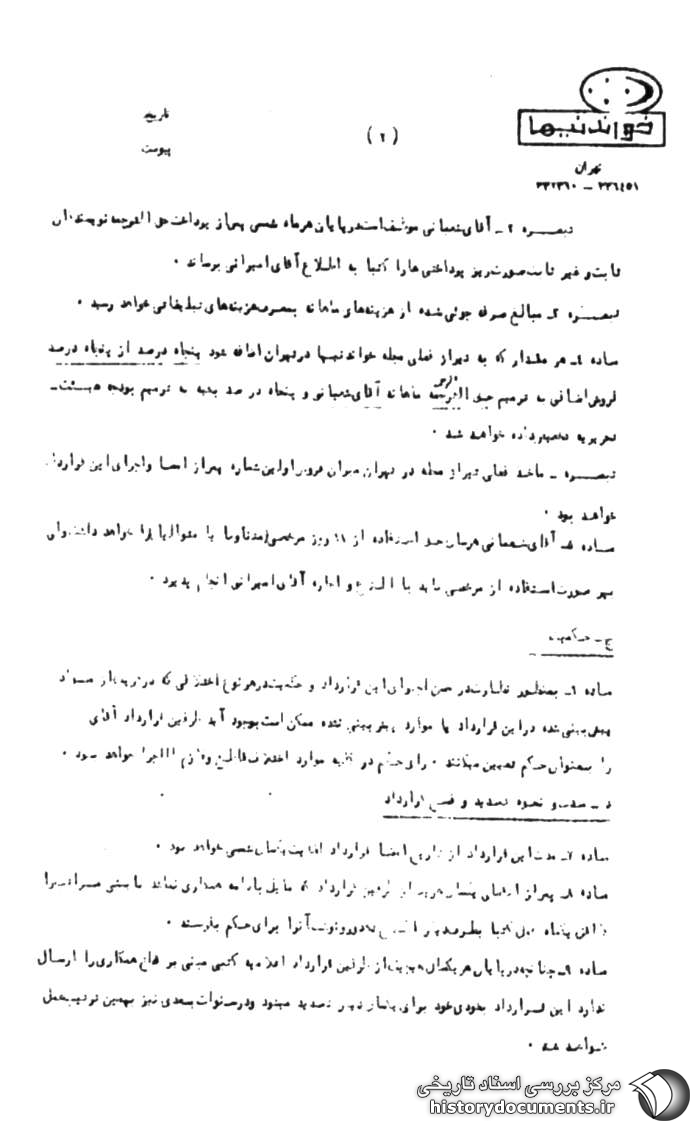 خواندنیها
تهران
۳۳۶۴۵۱ – ۳۳۲۳۶۰
تاریخ
پیوست
(۲)
تبصره ۲ـ آقای شعبانی موظف است در پایان هر ماه شمسی پس از پرداخت حق الترجمه نویسندگان
ثابت و غیر ثابت صورت ریز پرداختی ها را کتبا به اطلاع آقای امیرانی برساند .
تبصره ۳ـ مبالغ صرفه جوئی شده از هزینه های ماهانه بمصرف هزینه های تبلیغاتی خواهد رسید .
ماده ۴ـ هر مقدار که به تیراژ فعلی مجله خواندنیها در تهران اضافه شود پنجاه درصد از پنجاه درصد
فروش اضافی به ترمیم حق ماهانه آقای شعبانی و پنجاه در صد بقیه به ترمیم بودجه هیئت ـ
تحریریه تخصیص داده خواهد شد .
تبصره ـ ماخذ فعلی تیراژ مجله در تهران میزان فروش اولین شماره پس از امضا و اجرای این قرارداد
خواهد بود .
ماده ۵ـ آقای شعبانی هر سال حق استفاده از روز مرخصی متناوبا یا متوالیا را خواهد داشت ولی
بهر صورت استفاده از مرخصی باید با اطلاع و اجازه آقای امیرانی انجام پذیرد .
ج ـ حکمیت
ماده ۶ـ بمنظور نظارت در حسن اجرای این قرارداد و حکمیت در هر نوع اختلافی که در مواد
پیش بینی شده در این قرارداد یا موارد پیش بینی نشده ممکن است بوجود آید طرفین قرارداد آقای
را بعنوان حکم تعیین میکنند . رای حکم در کلیه موارد اختلاف قاطع و لازم الاجرا خواهد بود .
د ـ مدت و نحوه تمدید و فسخ قرارداد
ماده ۷ـ مدت این قرارداد از تاریخ امضا قرارداد لغایت یکسال شمسی خواهد بود .
ماده ۸ـ پس از انقضای یکسال هر یک از طرفین قرارداد که مایل بادامه همکاری نباشد بایستی مراتب را
کتبا بطرف دیگر اطلاع داده و رونوشت آنرا برای حکم بفرستد .
ماده ۹ـ چنانچه در پایان هر یکسال هیچیک از طرفین قرارداد اعلامیه کتبی مبنی بر قطع همکاری را ارسال
ندارد این قرارداد بخودی خود برای یکسال دیگر تمدید میشود و در سنوات بعدی نیز بهمین ترتیب عمل
خواهد شد .
مرکز بررسی اسناد تاریخی
historydocuments.ir